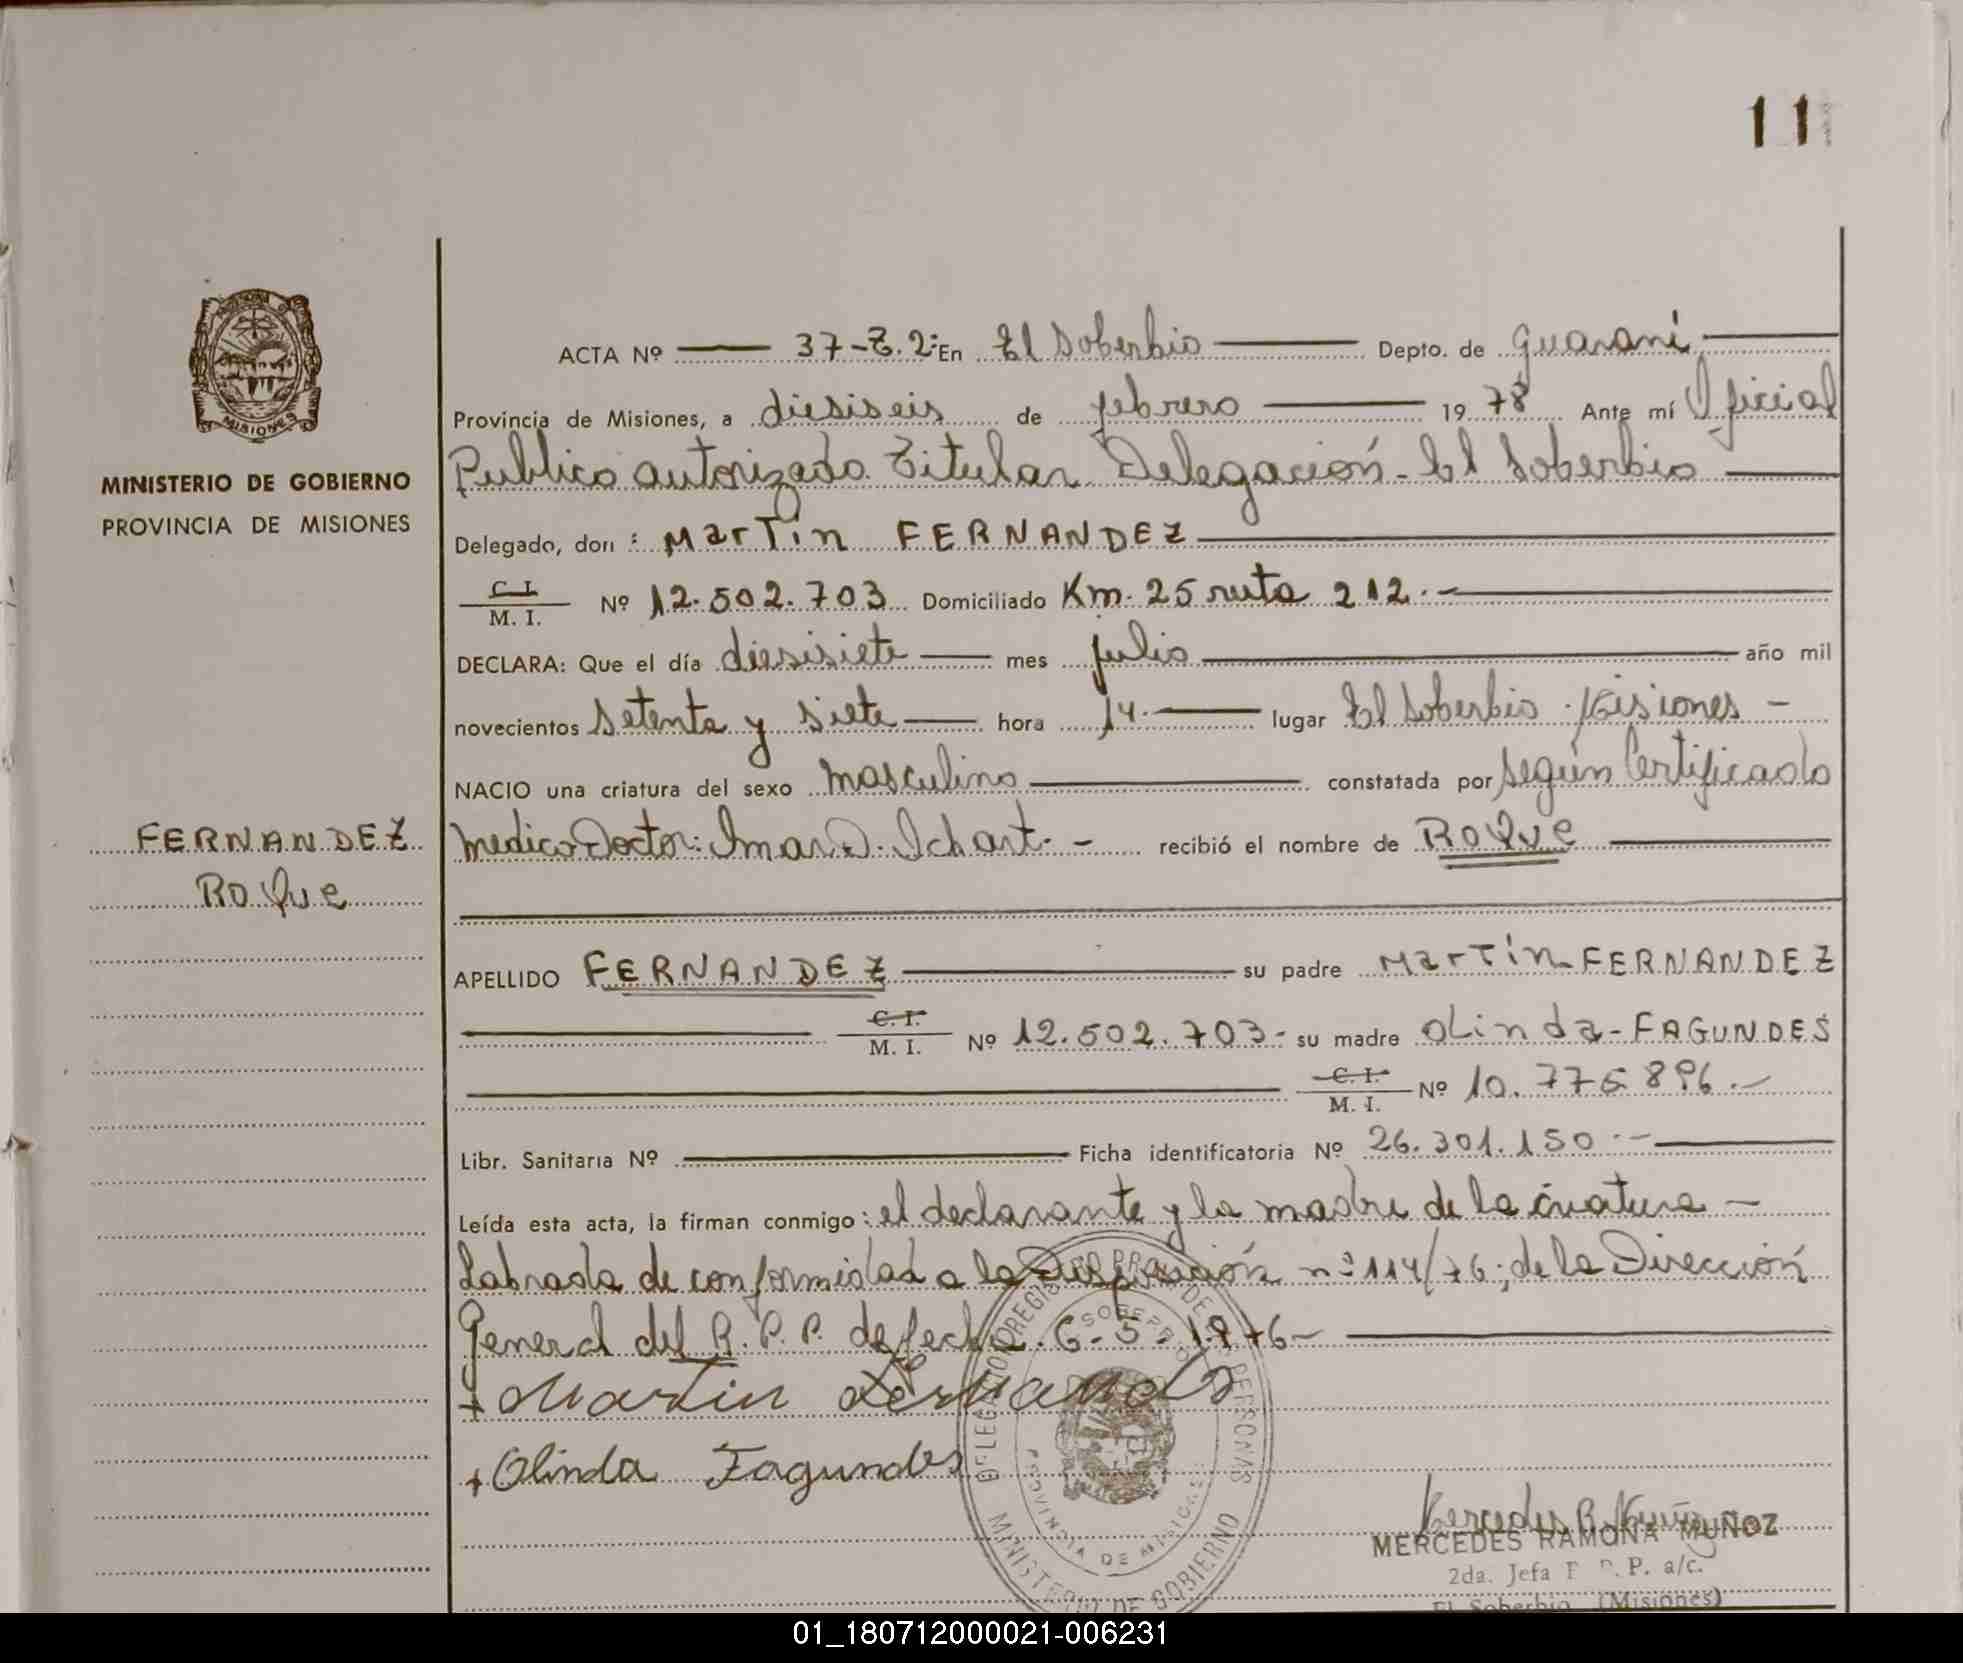 11
ACTA Nº 37-T.2: En El Soberbio Depto. de Guarani
Provincia de Misiones, a diesiseis de febrero 1978 Ante mí Oficial
Publico autorizado Titular Delegación - El Soberbio
Delegado, don: Martin FERNANDEZ
C. I.
M. I. Nº 12.502.703 Domiciliado Km. 25 ruta 212.-
DECLARA: Que el día diesisiete mes julio año mil
novecientos setenta y siete hora 14.- lugar El Soberbio - Misiones -
NACIO una criatura del sexo masculino constatada por según Certificado
medico Doctor: Omar D. Ichart.- recibió el nombre de Roque
APELLIDO FERNANDEZ su padre Martín FERNANDEZ
C. I.
M. I. Nº 12.502.703- su madre Olinda - FAGUNDES
C. I.
M. I. Nº 10.775896.-
Libr. Sanitaria Nº Ficha identificatoria Nº 26.301.150.-
Leída esta acta, la firman conmigo: el declarante y la madre de la criatura -
Labrada de conformidad a la Disposición nº 114/76; de la Dirección
General del R.P.P. de fecha. 6-5-1976-
+ Martin Fernandes
+ Olinda Fagundes
Mercedes R. Muñoz
MERCEDES RAMONA MUÑOZ
2da. Jefa P. P. a/c.
El Soberbio (Misiones)
MISIONES
MINISTERIO DE GOBIERNO
PROVINCIA DE MISIONES
FERNANDEZ
Roque
DELEGACION REGISTRO PROV. DE PERSONAS
SOBERBIO
PROVINCIA DE MISIONES
MINISTERIO DE GOBIERNO
01_180712000021-006231